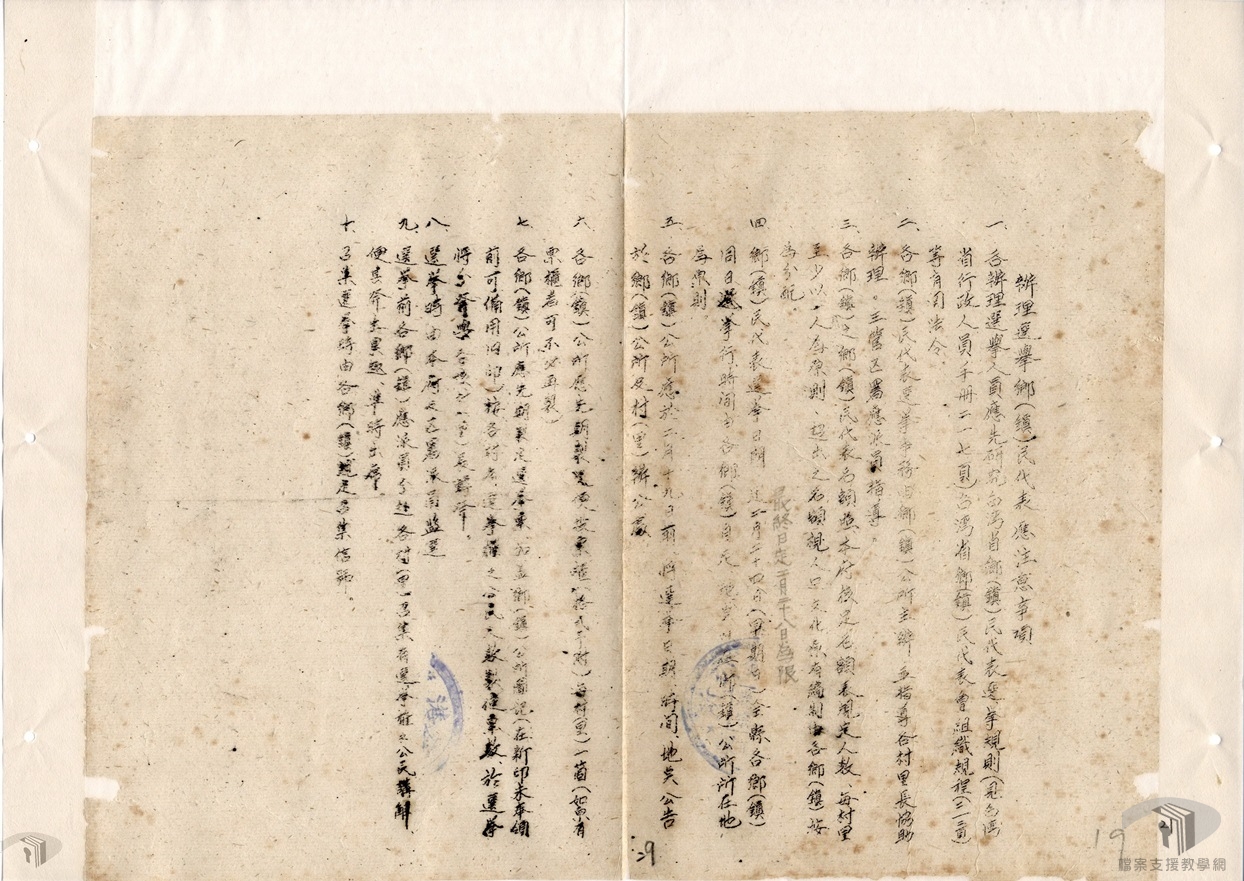 辦理選舉鄉(鎮)民代表應注意事項
一、各辦理選舉人員應先研究台灣省鄉(鎮)民代表選舉規則(見台灣
省行政人員手冊二一七頁)台灣省鄉(鎮)民代表會組織規程(二一三頁)
等有關法令。
二、各鄉(鎮)民代表選舉事務由鄉(鎮)公所主辦並指導各村里長協助
辦理。三當區署應派員指導。
三、各鄉(鎮)之鄉(鎮)民代表名額照本府核定名額表規定人數、每村里
至少以一人為原則、超出之名額視人口文化系有統制由各鄉(鎮)按
為分配
四、鄉(鎮)民代表選舉日期 二月二十四日(星期日)全縣各鄉(鎮)
最終日定二月二十八日為限
同日舉行時間由各鄉(鎮)自定 鄉(鎮)公所所在地
為原則
五、各鄉(鎮)公所應於二月十九日前、將選舉日期 時間 地點公告
於鄉(鎮)公所及村(里)辦公處
六、各鄉(鎮)公所應先期製 投票櫃(格式另附)每村(里)一箇(如舊有
票櫃者可不必再製)
七、各鄉(鎮)公所應先期製定選舉票、加蓋鄉(鎮)公所圖記(在新印未奉頒
前可備用旧印)按各村有選舉權之公民人數製備票數、於選舉
將分發 各村(里)長轉發。
八、選舉時由本府及區署派員監選
九、選舉前各鄉(鎮)應派員分赴各村(里)召集有選舉權之公民講解
使其發生興趣、準時出席。
十、召集選舉時由各鄉(鎮)規定召集信號。
19
29
檔案支援教學網